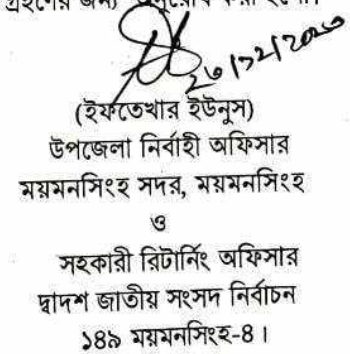 গ্রহণের জন্য অনুরোধ করা হলো।
২৬/১২/২০২৩
(ইফতেখার ইউনুস)
উপজেলা নির্বাহী অফিসার
ময়মনসিংহ সদর, ময়মনসিংহ
ও
সহকারী রিটার্নিং অফিসার
দ্বাদশ জাতীয় সংসদ নির্বাচন
১৪৯ ময়মনসিংহ-৪।